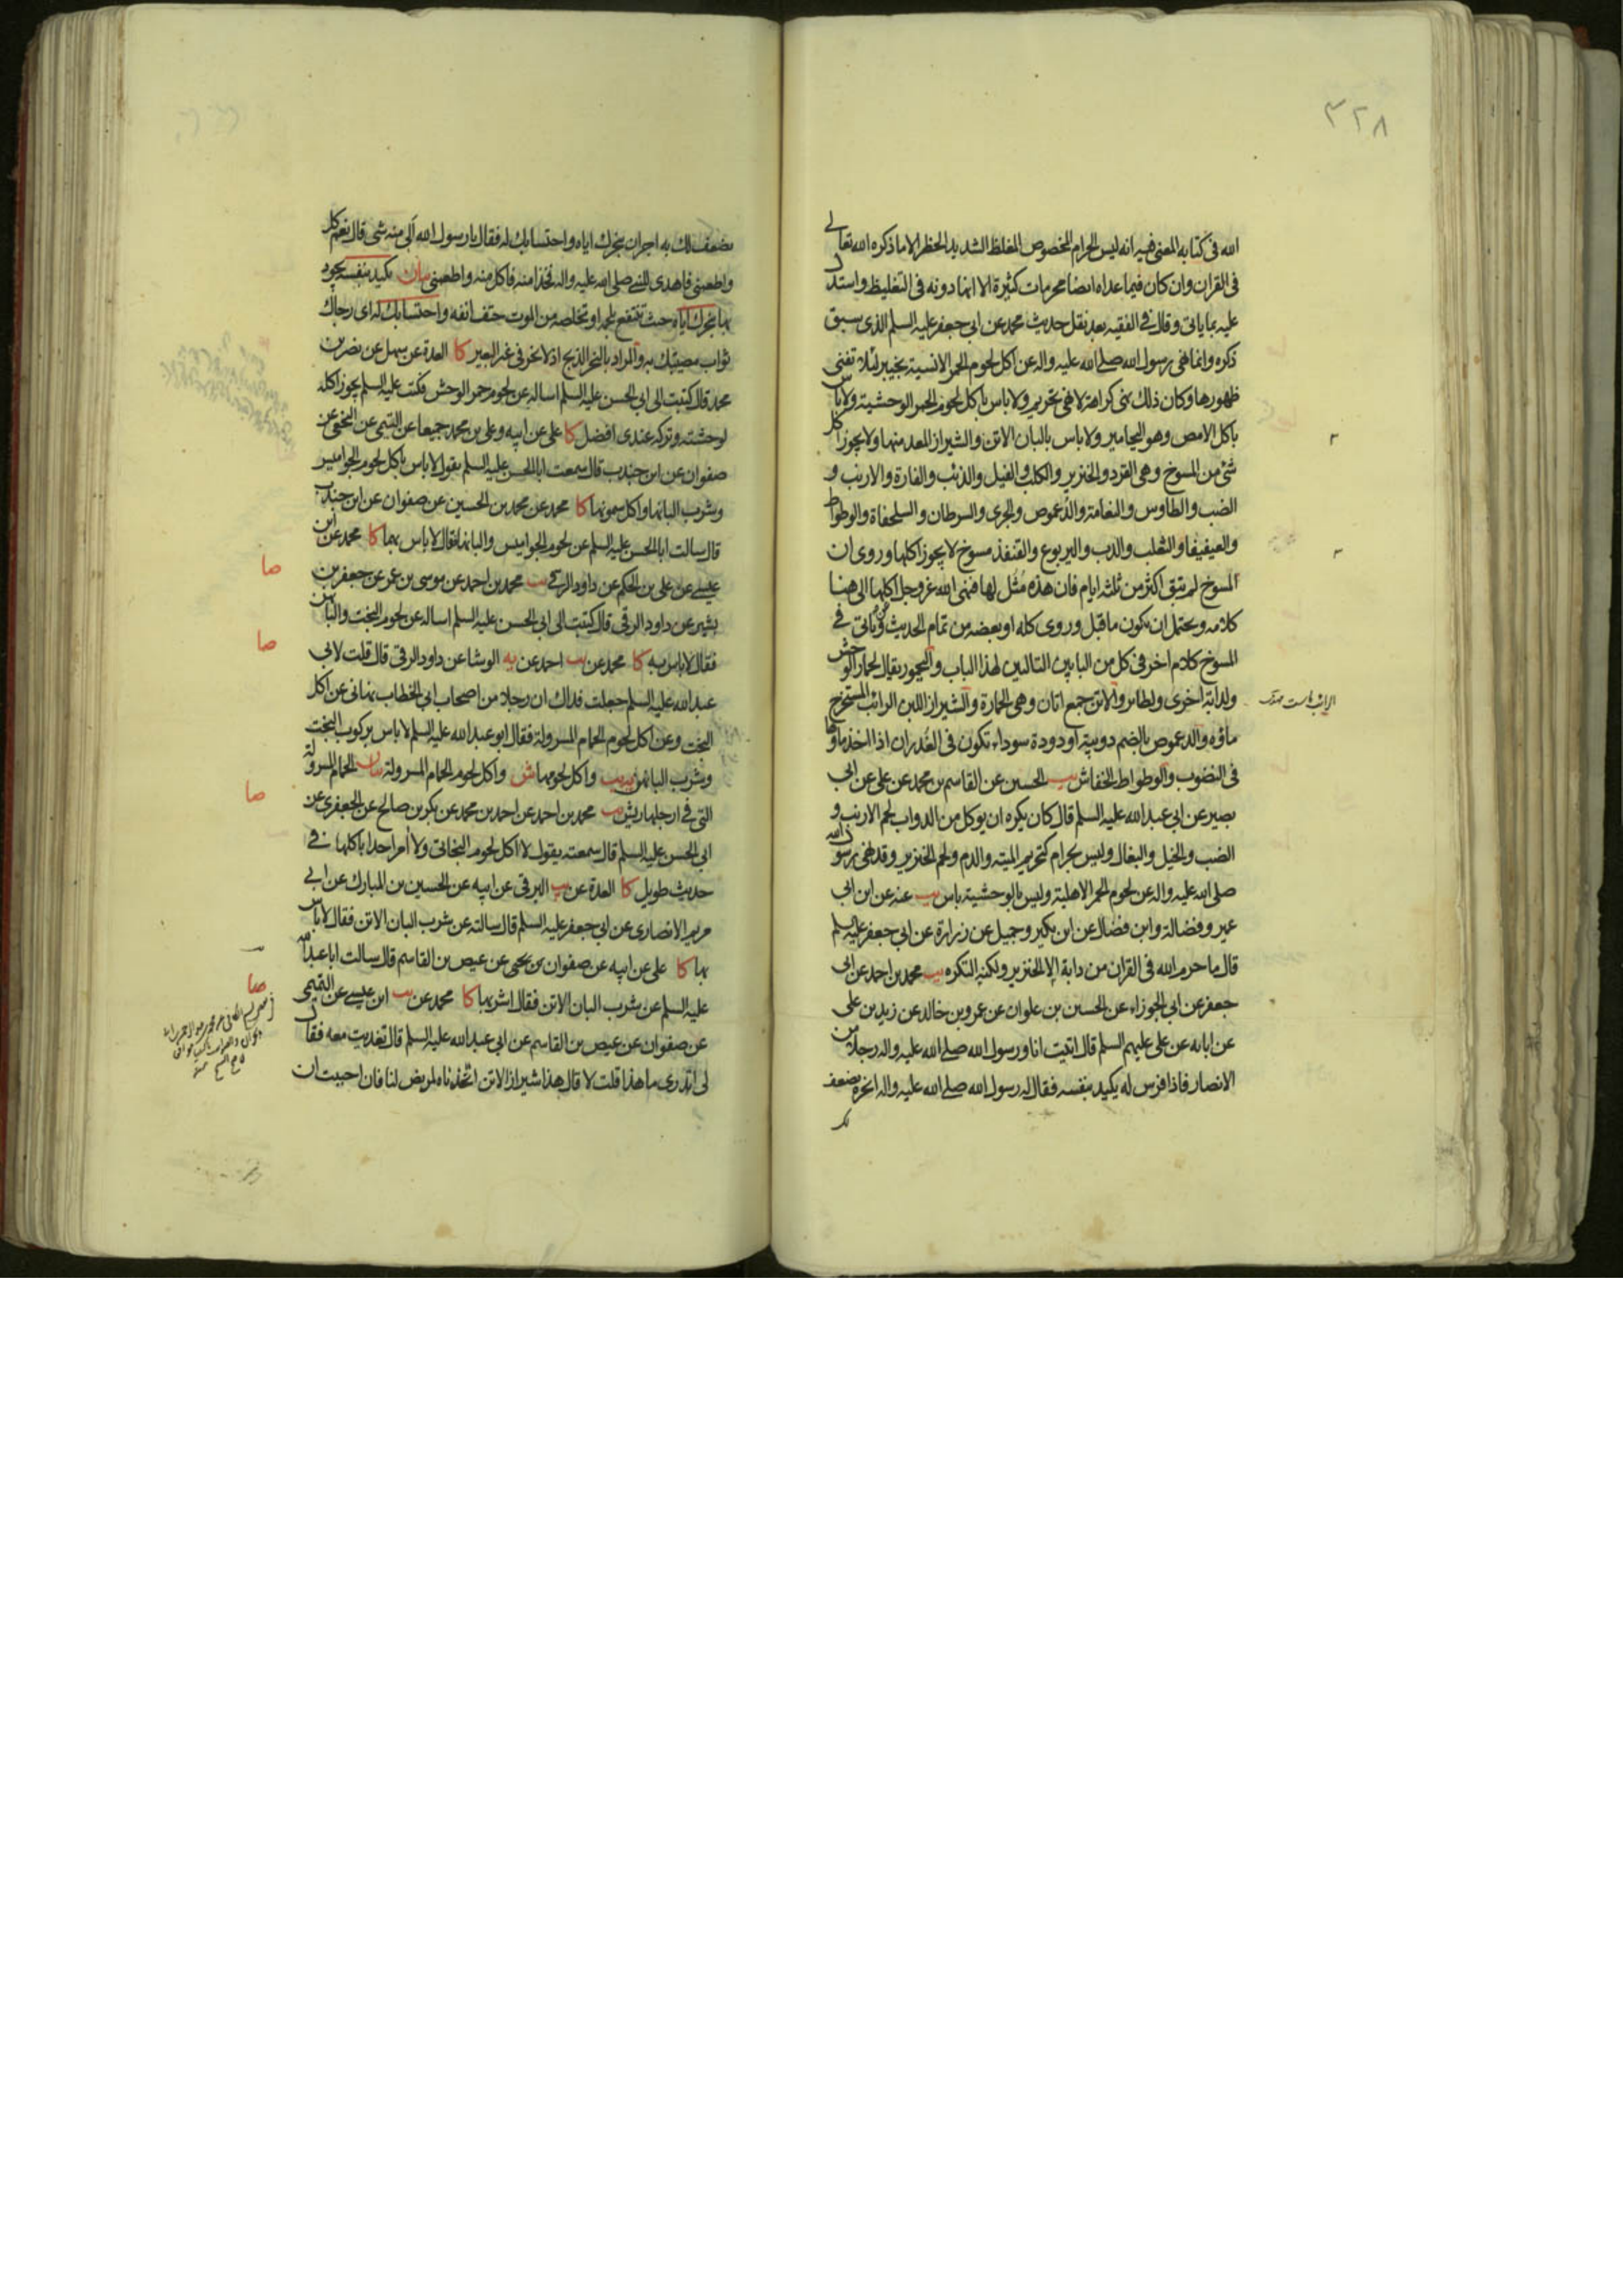 ٣٢٨
الله فى كتابه المعنى فيه انه ليس الحرام المخصوص المغلظ الشديد الحظر الا ما ذكره الله تعالى
فى القران وان كان فيما عداه ايضا محرمات كثيرة الا انها دونه فى التغليظ واستدل
عليه بما ياتى وقال فى الفقيه بعد نقل حديث محمد عن ابى جعفر عليه السلم الذى سبق
ذكره وانما نهى رسول الله صلى الله عليه واله عن اكل لحوم الحمر الانسية بخيبر لئلا تفنى
ظهورها وكان ذلك نهى كراهة لا نهى تحريم ولا باس باكل لحوم الحمر الوحشية ولا باس
باكل الامص وهو اليحامير ولا باس بالبان الاتن والشيراز المعد منها ولا يجوز اكل
شئ من المسوخ وهى القرد والخنزير والكلب والفيل والذئب والفارة والارنب و
الضب والطاوس والنعامة والدعموص والجرى والسرطان والسلحفاة والوطواط
والعيفيفا والثعلب والدب واليربوع والقنفذ مسوخ لا يجوز اكلها وروى ان
المسوخ لم تبق اكثر من ثلثة ايام فان هذه مثل لها فنهى الله عز وجل اكلها الى هنا
كلامه ويحتمل ان يكون ما قبل وروى كله او بعضه من تمام الحديث وياتى فى
المسوخ كلام اخر فى كل من البابين التاليين لهذا الباب واليحمور يقال لحمار الوحش
ولدابة اخرى ولطائر والاتن جمع اتان وهى الحمارة والشيراز اللبن الرائب المستخرج
ماؤه والدعموص بالضم دويبة او دودة سوداء تكون فى الغدران اذا اخذ ماؤها
فى النضوب والوطواط الخفاش يب الحسين عن القاسم بن محمد عن على عن ابى
بصير عن ابى عبد الله عليه السلم قال كان يكره ان يوكل من الدواب لحم الارنب و
الضب والخيل والبغال وليس بحرام كتحريم الميته والدم ولحم الخنزير وقد نهى رسول الله
صلى الله عليه واله عن لحوم الحمر الاهلية وليس بالوحشية باس يب عنه عن ابن ابى
عمير وفضالة وابن فضال عن ابن بكير وجميل عن زرارة عن ابى جعفر عليه السلم
قال ما حرم الله فى القران من دابة الا الخنزير ولكنه التكره يب محمد بن احمد عن ابى
جعفر عن ابى الجوزاء عن الحسين بن علوان عن عمرو بن خالد عن زيد بن على
عن ابائه عن على عليهم السلم قال اتيت انا ورسول الله صلى الله عليه واله رجلا من
الانصار فاذا فرس له يكيد بنفسه فقال له رسول الله صلى الله عليه واله انحره يضعف
يضعف لك به اجران بنحرك اياه واحتسابك له فقال يا رسول الله الى منه شى قال نعم كل
واطعمنى فاهدى للنبى صلى الله عليه واله فخذا منه فاكل منه واطعمنى بيان يكيد بنفسه يجود
بها بنحرك اياه حيث تنتفع بلحمه او تخلصه من الموت حتف انفه واحتسابك له اى رجاك
ثواب مصيبتك به والمراد بالنحر الذبح اذ لا نحر فى غير البعير كا العدة عن سهل عن نضر بن
محمد قال كتبت الى ابى الحسن عليه السلم اساله عن لحوم حمر الوحش فكتب عليه السلم يجوز اكله
لوحشته وتركه عندى افضل كا على عن ابيه وعلى بن محمد جميعا عن التيمى عن النخعى عن
صفوان عن ابن جندب قال سمعت ابا الحسن عليه السلم يقول لا باس باكل لحوم الجواميس
وشرب البانها واكل سمونها كا محمد عن محمد بن الحسين عن صفوان عن ابن جندب
قال سالت ابا الحسن عليه السلم عن لحوم الجواميس والبانها فقال لا باس بهما كا محمد عن ابن
عيسى عن على بن الحكم عن داود الرقى يب محمد بن احمد عن موسى بن عمر عن جعفر بن
بشير عن داود الرقى قال كتبت الى ابى الحسن عليه السلم اساله عن لحوم البخت والبانهن
فقال لا باس به كا محمد عن يب احمد عن يه الوشا عن داود الرقى قال قلت لابى
عبد الله عليه السلم جعلت فداك ان رجلا من اصحاب ابى الخطاب نهانى عن اكل
البخت وعن اكل لحوم الحمام المسرولة فقال ابو عبد الله عليه السلم لا باس بركوب البخت
وشرب البانهن يه يب واكل لحومها ش واكل لحوم الحمام المسرولة بيان الحمام المسرولة
التى فى ارجلها ريش يب محمد بن احمد عن احمد بن محمد عن بكر بن صالح عن الجعفرى عن
ابى الحسن عليه السلم قال سمعته يقول لا اكل لحوم البخاتى ولا امر احدا باكلها فى
حديث طويل كا العدة عن يب البرقى عن ابيه عن الحسين بن المبارك عن ابى
مريم الانصارى عن ابى جعفر عليه السلم قال سالته عن شرب البان الاتن فقال لا باس
بها كا على عن ابيه عن صفوان بن يحيى عن عيص بن القاسم قال سالت ابا عبد الله
عليه السلم عن شرب البان الاتن فقال اشربها كا محمد عن يب ابن عيسى عن التميمى
عن صفوان عن عيص بن القاسم عن ابى عبد الله عليه السلم قال تغديت معه فقال
لى اتدرى ما هذا قلت لا قال هذا شيراز الاتن اتخذناه لمريض لنا فان احببت ان
صا
صا
صا
صا